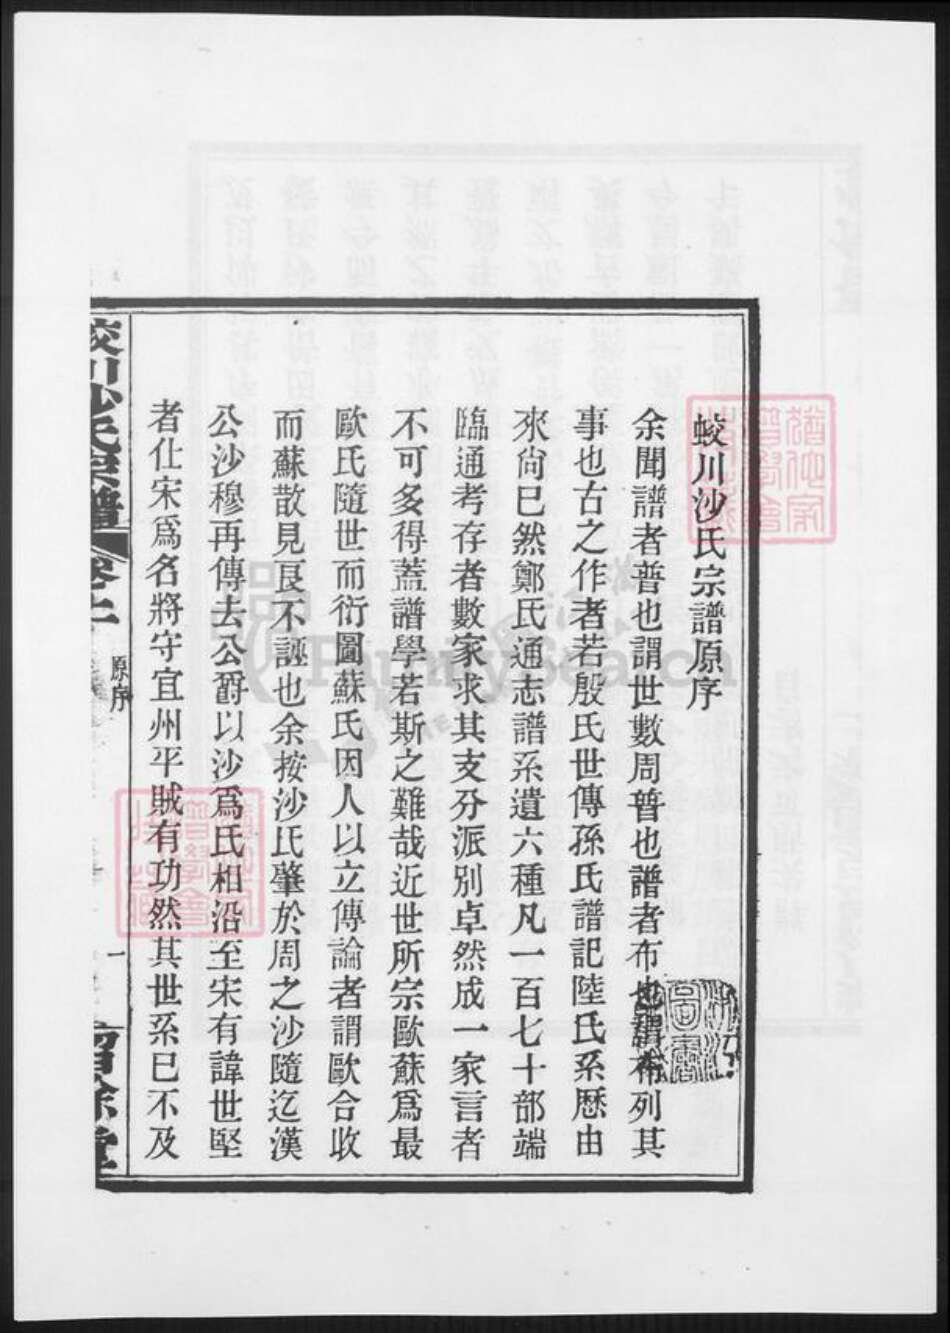 蛟川沙氏宗譜原序
余聞譜者普也謂世數周普也譜者布也謂布列其
事也古之作者若殷氏世傳孫氏譜記陸氏系歷由
來尙已然鄭氏通志譜系遺六種凡一百七十部端
臨通考存者數家求其支分派別卓然成一家言者
不可多得蓋譜學若斯之難哉近世所宗歐蘇爲最
歐氏隨世而衍圖蘇氏因人以立傳論者謂歐合收
而蘇散見良不誣也余按沙氏肇於周之沙隨迄漢
公沙穆再傳去公爵以沙爲氏相沿至宋有諱世堅
者仕宋爲名將守宜州平賊有功然其世系已不及
蛟川沙氏宗譜 卷之上 原序 一 留餘堂
FamilySearch